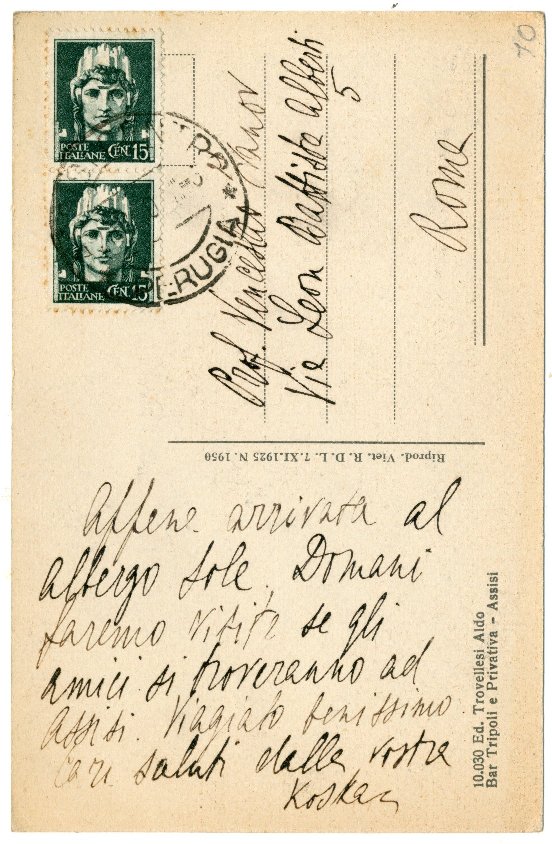 10
POSTE
ITALIANE CEN. 15
POSTE
ITALIANE CEN. 15
RUGIA
Prof. Venceslao
Via Leon Battista Alberti
5
Roma
Riprod. Viet. R. D. L. 7. XI. 1925 N. 1950
Appena arrivata al
albergo Sole. Domani
faremo visita se gli
amici si troveranno ad
Assisi. Viagiato benissimo
cari saluti dalla vostra
10.030 Ed. Trovellesi Aldo
Bar Tripoli e Privativa - Assisi